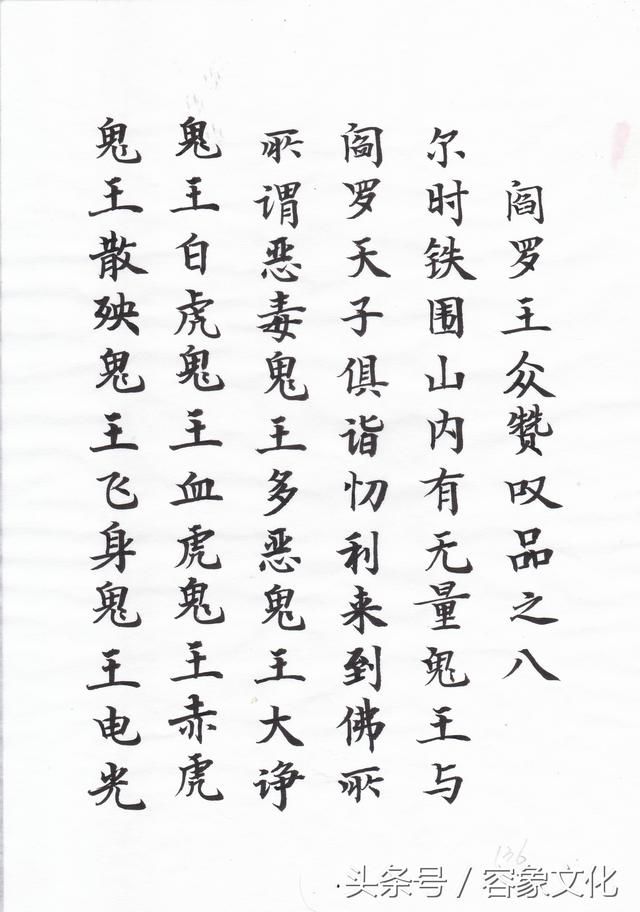 阎罗王众赞叹品之八
尔时铁围山内有无量鬼王与
阎罗天子俱诣忉利来到佛所
所谓恶毒鬼王多恶鬼王大诤
鬼王白虎鬼王血虎鬼王赤虎
鬼王散殃鬼王飞身鬼王电光
136
头条号/容象文化